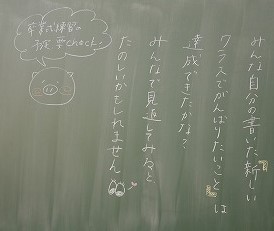 みんな自分の書いた新しい
クラスでがんばりたいことは
達成できたかな?
みんなで見返してみると
たのしいかもしれません
卒業式練習の
check